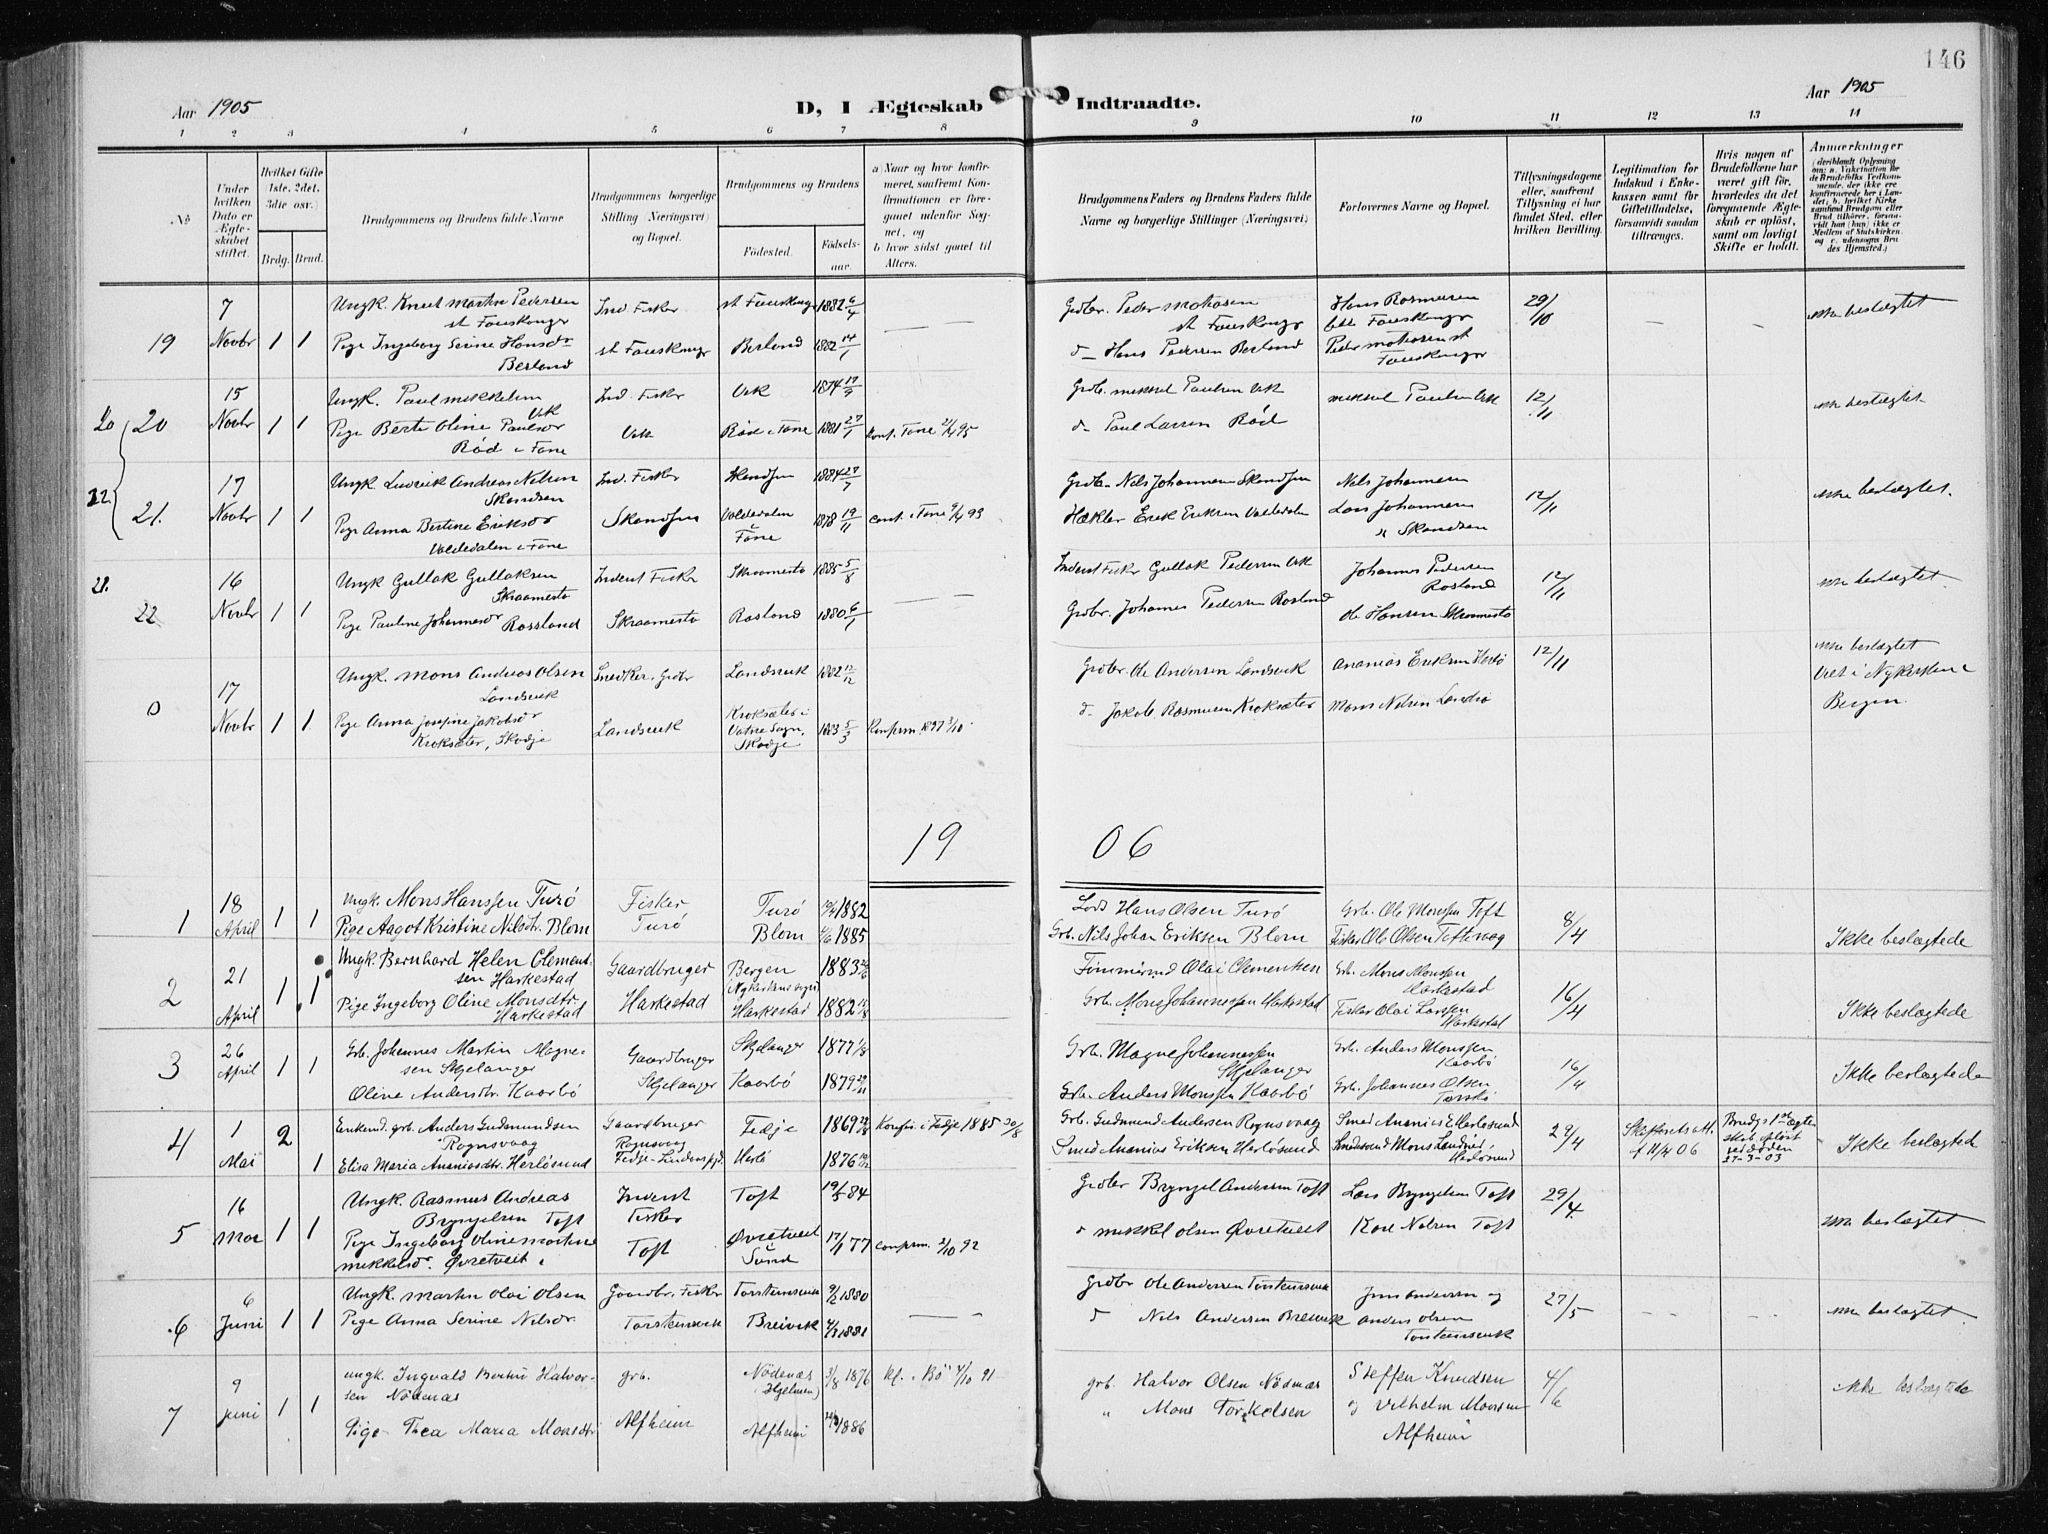 146
Aar 1905
D, I Ægteskab Indtraadte.
Aar 1905
1 2 3 4 5 6 7 8 9 10 11 12 13 14
No
Under hvilken Dato er Ægteskabet stiftet.
Hvilket Gifte 1ste, 2det, 3die osv.)
Brdg. Brud.
Brudgommens og Brudens fulde Navne
Brudgommens borgerlige Stilling (Næringsvei) og Bopæl.
Brudgommens og Brudens
Födested.
Födselsaar.
a) Naar og hvor konfirmeret, saafremt Konfirmationen er foregaaet udenfor Sognet, og
b) hvor sidst gaaet til Alters.
Brudgommens Faders og Brudens Faders fulde Navne og borgerlige Stillinger (Næringsvei)
Forlovernes Navne og Bopæl.
Tillysningsdagene eller, saafremt Tillysning ei har fundet Sted, efter hvilken Bevilling.
Legitimation for Indskud i Enkekassen samt for Giftetilladelse, forsaavidt saadan tiltrænges.
Hvis nogen af Brudefolkene har været gift før, hvorledes da det foregaaende Ægteskab er opløst, samt om lovligt Skifte er holdt.
Anmærkninger
19
7 Novbr
1 1
Ungk. Knut Martin Pedersen
st Fauskanger
Pige Ingeborg Serine Hansdr
Berland
Ind Fisker
st Fauskanger
st Fauskanger
Berland
1882 6/4
1882 14/1
Grdbr. Peder Mathasen
st Fauskanger
d– Hans Pedersen Berland
Hans Rasmusen
lille Fauskanger
Peder Mathasen st
Fauskanger
29/10
ikke beslægtet
20 20
15 Novbr
1 1
Ungk. Paul Mikkelsen
Vik
Pige Berte Oline Paulsdr
Rød i Fane
Ind. Fisker
Vik
Vik
Rød i Fane
1874 17/9
1881 27/1
Konf. Fane 21/4 95
Grdb. Mikkel Paulsen Vik
d– Paul Larsen Rød
Mikkel Paulsen Vik
12/11
ikke beslægtet
22. 21.
17 Novbr
1 1
Ungk. Ludvik Andreas Nilsen
Skandsen
Pige Anna Bertine Eriksdr
Valdedalen i Fane
Ind. Fisker
Skandsen
Skandsen
Valdedalen
Fane
1884 27/7
1878 19/11
conf. i Fane 9/4 93
Grdbr. Nils Johannesen Skandsen
Hækler Erik Eriksen Valdedalen
Nils Johannesen
Lars Johannesen
" Skandsen
12/11
ikke beslægtet.
21. 22
16 Novbr
1 1
Ungk Gullak Gullaksen
Skraamestø
Pige Pauline Johannesdr Rossland
Inderst Fisker
Skraamestø
Skraamestø
Rosland
1885 5/8
1880 6/1
Inderst Fisker Gullak Pedersen Vik
Grdbr. Johannes Pedersen Rosland
Johannes Pedersen
Rosland
Ole Hansen Skraamestø
12/11
ikke beslægtet
0
17 Novbr
1 1
Ungk. Mons Andreas Olsen
Landsvik
Pige Anna Josefine Jakobsdr
Kroksæter, Skodje
Snedker, Grdbr
Landsvik
Landsvik
Kroksæter i
Vatne Sogn,
Skodje
1882 12/12
1883 5/3
Konfirm. 1897 3/10
Grdbr Ole Andersen Landsvik
d– Jakob Rasmusen Kroksæter
Ananias Eriksen Herlø
Mons Nilsen Landrø
12/11
ikke beslægtet
Viet i Nykirken i
Bergen.
19 06
1
18 April
1 1
Ungk. Mons Hanssen Turö
Pige Aagot Kristine Nilsdtr. Blom
Fisker
Turö
Turö
Blom
1882
1885
Hans Olsen Turö
Grb. Nils Johan Eriksen Blom
Grb. Ole Monssen Toft
Fisker Ole Olsen Toftevaag
8/4
Ikke beslægtede
2
21 April
1 1
Ungk. Bernhard Helen Clement-
sen Harkestad
Pige Ingeborg Oline Monsdtr.
Harkestad
Gaardbruger
Harkestad
Bergen
(Nykirkens sogn)
Harkestad
1883
1882
Tømmermd Olai Clementsen
Grb. Mons Johannessen Harkestad
Grb. Mons Monssen
Harkestad
Fisker Olai Larssen
Harkestad
16/4
Ikke beslægtede
3
26 April
1 1
Grb. Johannes Martin Magne-
sen Skjelanger
Oline Andersdtr. Kaarbö
Gaardbruger
Skjelanger
Skjelanger
Kaarbö
1877
1879
Grb. Magne Johannessen
Skjelanger
Grb. Anders Monssen Kaarbö
Grb. Anders Monssen
Kaarbö
Grb. Johannes Olsen
Torskö
16/4
Ikke beslægtede
4
1 Mai
2 1
Enkemd. grb. Anders Gudmundsen
Rognsvaag
Elisa Maria Ananiasdtr. Herlösund
Gaardbruger
Rognsvaag
Fedje - Lindaas pgd.
Fedje
Herlö
1869
1876
Konfir. i Fedje 1885 30/8
Grb. Gudmund Andersen Rognsvaag
Smed Ananias Eriksen Herlösund
Smed Ananias E Herlösund
Mons Landrø
Herlösund
29/4
Skifterets att.
f 11/4 06
Brudgs 1ste ægte-
skab opløst
ved døden
27-3-03
Ikke beslægtede
5
16 Mai
1 1
Ungk. Rasmus Andreas
Brynjelsen Toft
Pige Ingeborg Oline Martine
Mikkelsd. Øvretveit
Inderst
Fisker
Toft
Toft
Øvretveit
Sund
19/5 84
17/1 77
confirm. 2/10 92
Grdbr Brynjel Andersen Toft
" Mikkel Olsen Øvretveit
Lars Brynjelsen Toft
Kare Nilsen Toft
29/4.
ikke beslægtet
6
6 Juni
1 1
Ungk. Martin Olai Olsen
Pige Anna Serine Nilsdr
Gaardbr. Fisker
Torsteinsvik
Torsteinsvik
Breivik
9/2 1880
1881
Grdbr Ole Andersen Torsteinsvik
d Nils Andersen Breivik
Jens Andersen og
Anders Olsen
Torsteinsvik
27/5
ikke beslægtet
7
9 Juni
1 1
Ungk. Ingvald Bertin Halvor-
sen Nödenæs
Pige Thea Maria Monsdtr
grb.
Alfheim
Nödenæs
(Hjelmen)
Alfheim
3/8 1876
1886
kf. i Bö 4/10 91
grb. Halvor Olsen Nödnæs
" Mons Torkelsen
Steffen Knudsen
og Vilhelm Monsen
Alfheim
4/6
ikke beslægtede